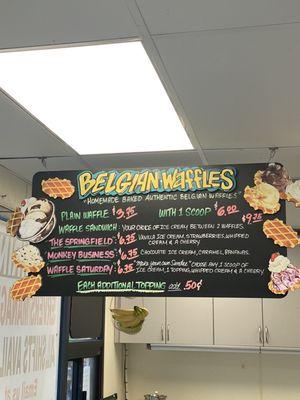 BELGIAN WAFFLES
"HOMEMADE BAKED AUTHENTIC BELGIAN WAFFLES"
PLAIN WAFFLE $3.75 WITH 1 SCOOP $6.00
WAFFLE SANDWICH: YOUR CHOICE OF ICE CREAM BETWEEN 2 WAFFLES $9.75
THE SPRINGFIELD: $6.75 VANILLA ICE CREAM, STRAWBERRIES, WHIPPED
CREAM & A CHERRY
MONKEY BUSINESS: $6.75 CHOCOLATE ICE CREAM, CARAMEL, BANANAS.
WAFFLE SATURDAY: $6.75 "MAKE YOUR OWN Sundae" CHOOSE ANY 1 SCOOP OF
ICE CREAM, 1 TOPPING, WHIPPED CREAM & A CHERRY
EACH ADDITIONAL TOPPING add 50¢